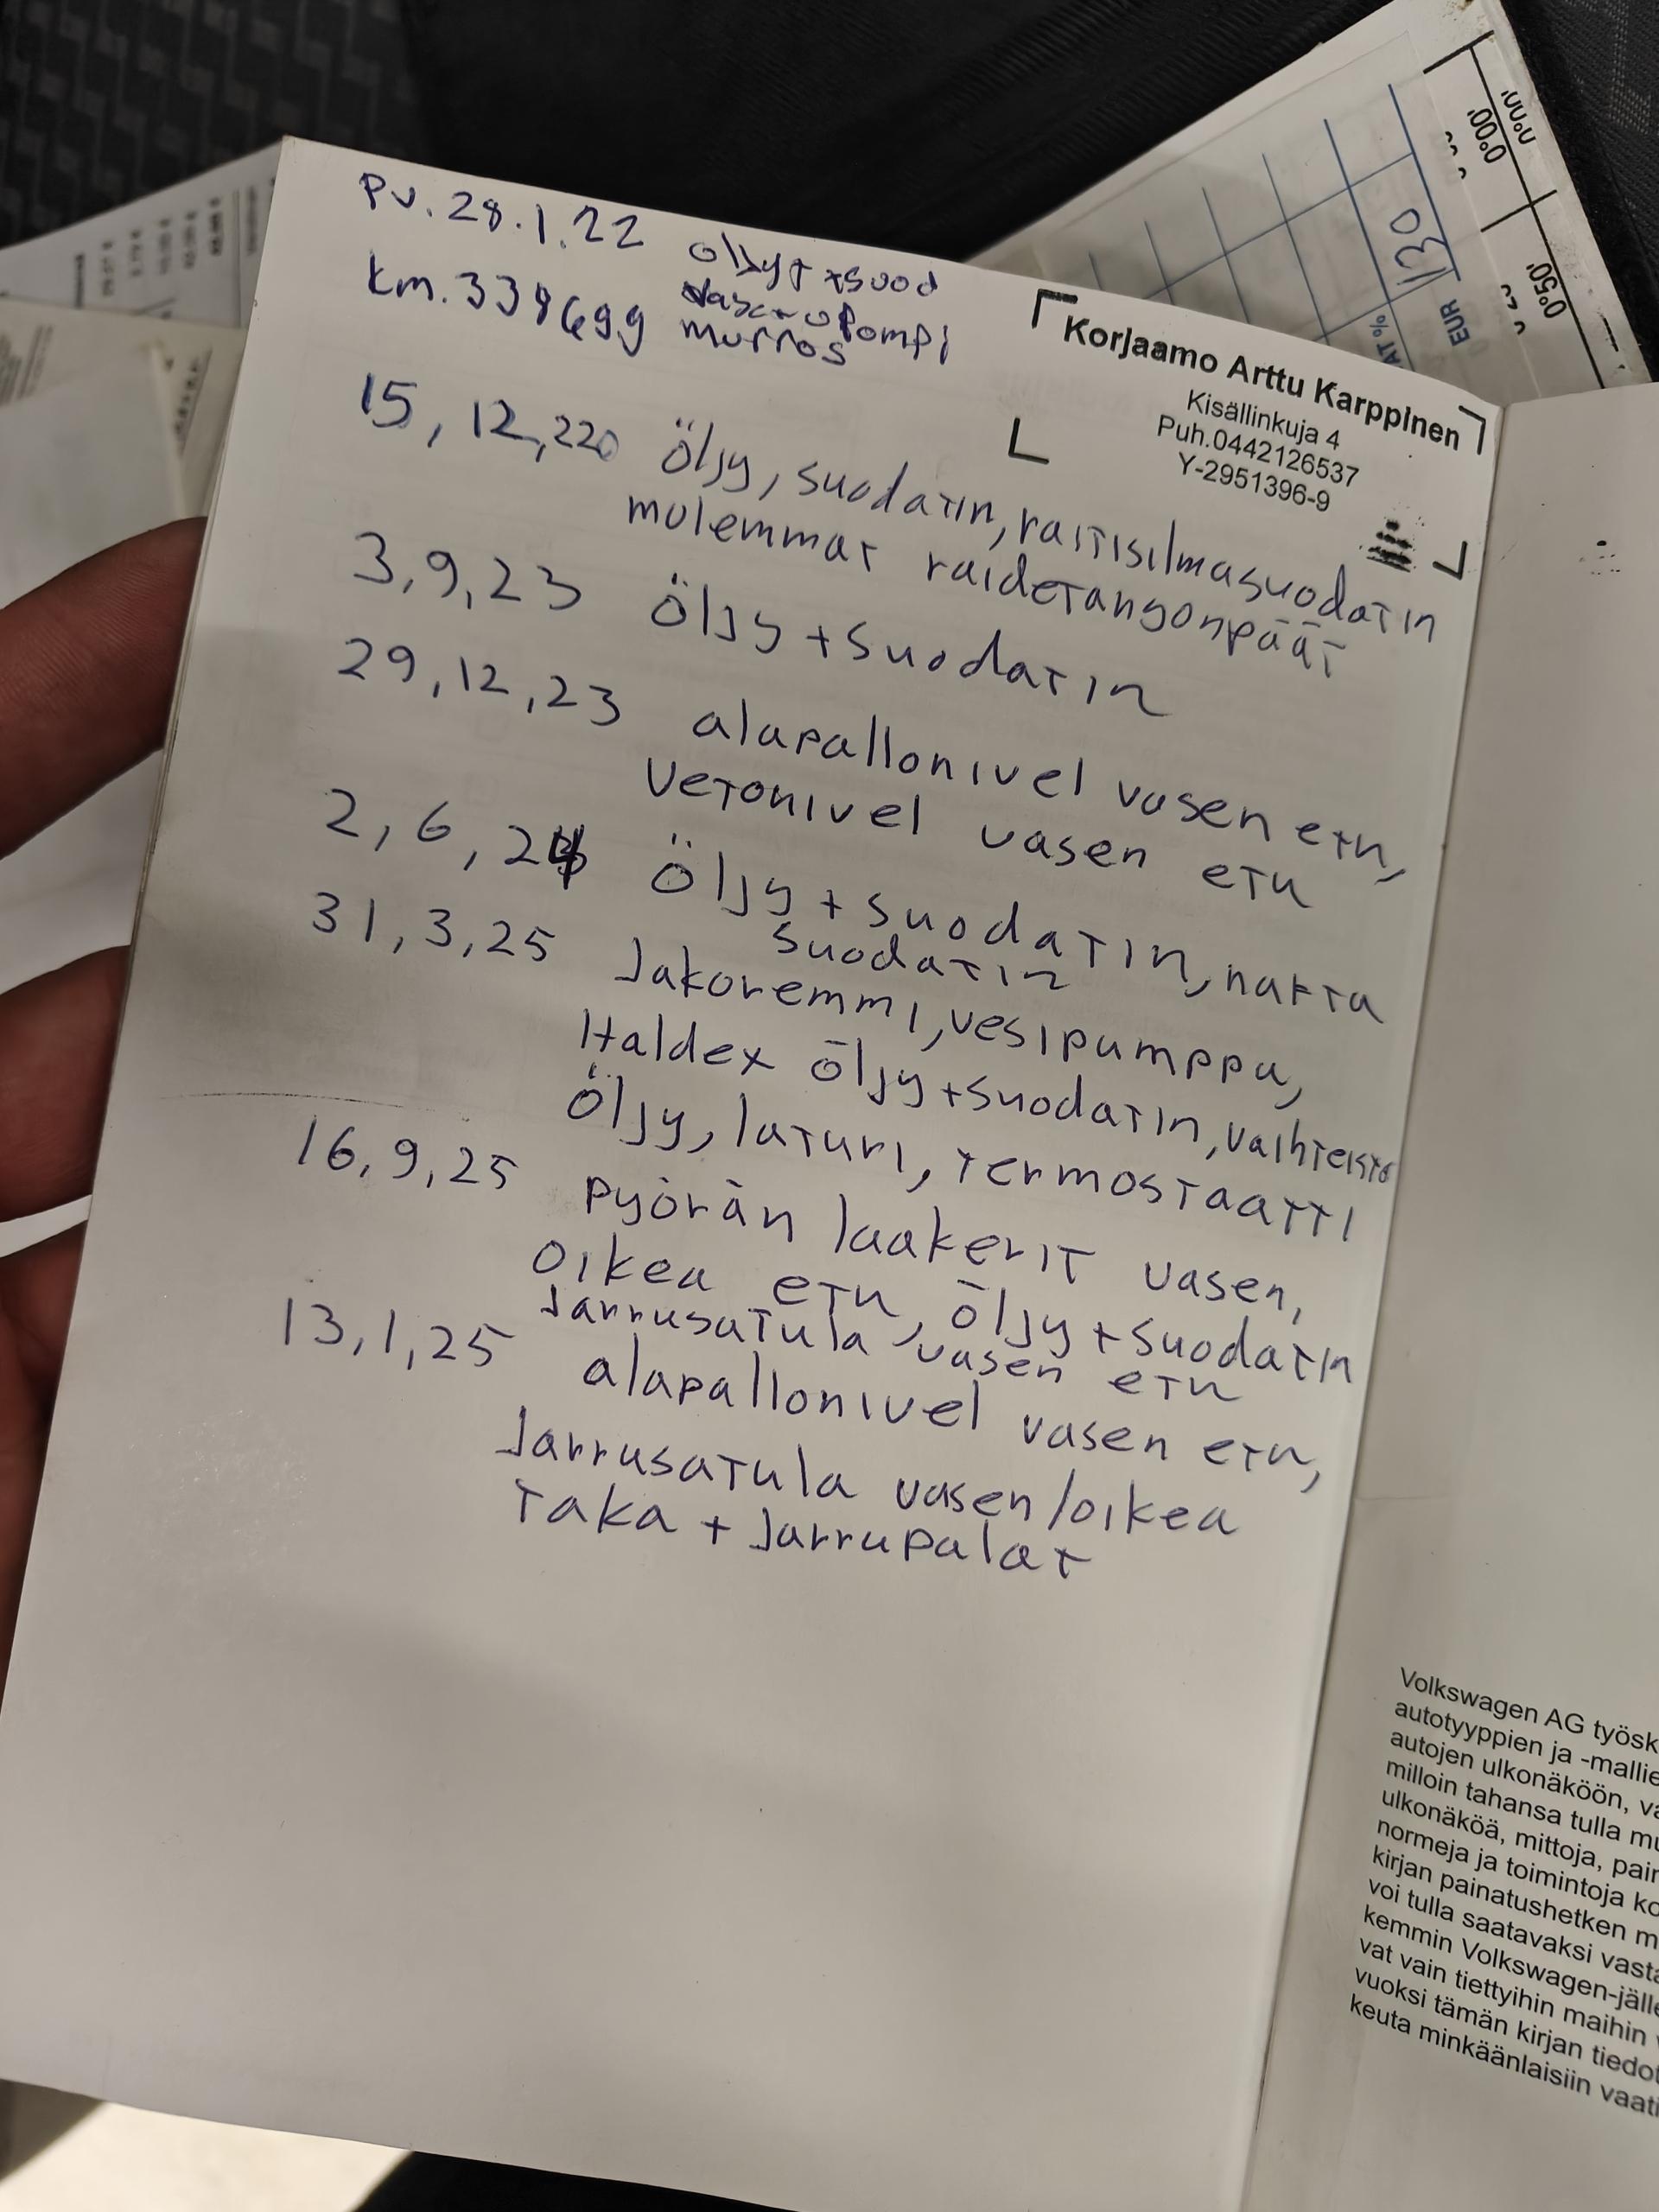 Pv. 28.1.22 öljyt + suod
km. 339699
murros pompi
Korjaamo Arttu Karppinen
Kisällinkuja 4
Puh.0442126537
Y-2951396-9
15,12,22 Öljy, suodatin, raitisilmasuodatin
molemmat raidetangonpäät
3,9,23 Öljy + suodatin
29,12,23 alapallonivel vasen etu,
Vetonivel vasen etu
2,6,24 Öljy + suodatin, nafta
suodatin
31,3,25 Jakoremmi, vesipumppu,
Haldex öljy + suodatin, vaihteisto
Öljy, laturi, termostaatti
16,9,25 pyörän laakerit vasen,
oikea etu, öljy + suodatin
Jarrusatula vasen etu
13,1,25 alapallonivel vasen etu,
Jarrusatula vasen/oikea
taka + Jarrupalat
130
AT %
EUR
0'00'
0'50'
Volkswagen AG työsk
autotyyppien ja -mallie
autojen ulkonäköön, va
milloin tahansa tulla mu
ulkonäköä, mittoja, pain
normeja ja toimintoja ko
kirjan painatushetken m
voi tulla saatavaksi vasta
kemmin Volkswagen-jälle
vat vain tiettyihin maihin v
vuoksi tämän kirjan tiedot
keuta minkäänlaisiin vaati